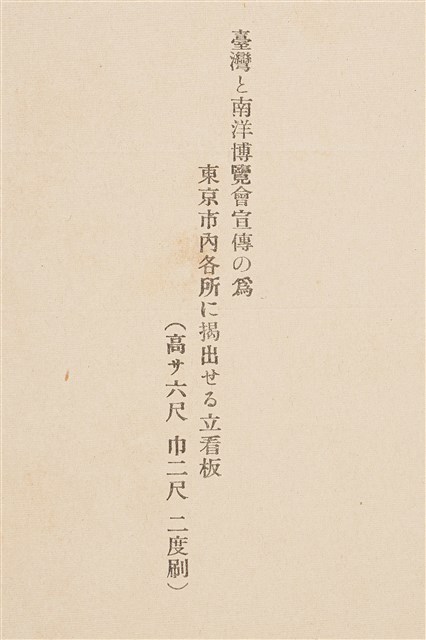 臺灣と南洋博覽會宣傳の爲
東京市內各所に揭出せる立看板
（高サ六尺 巾二尺 二度刷）